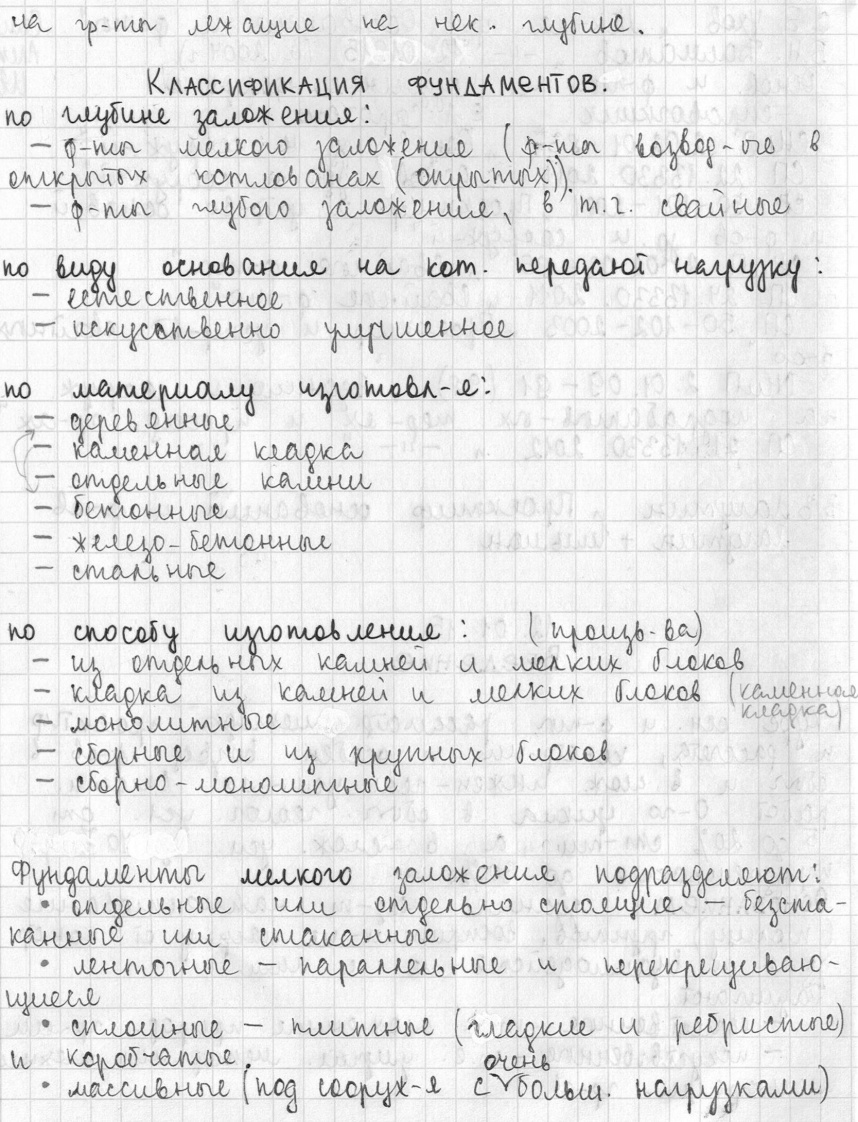 на гр-ты лежащие на нек. глубине.
Классификация фундаментов.
по глубине заложения:
– ф-ты мелкого заложение (ф-ты возвод-ые в
открытых котлованах (опрытых)).
– ф-ты глубого заложения, в т.ч. свайные
по виду основания на кот. передают нагрузку:
– естественное
– искусственно улучшенное
по материалу изготовл-я:
– деревянные
– каменная кладка
– отдельные камни
– бетонные
– железо-бетонные
– стальные
по способу изготовления: (произв-ва)
– из отдельных камней и мелких блоков
– кладка из камней и мелких блоков (каменная
кладка)
– монолитные
– сборные и из крупных блоков
– сборно-монолитные
Фундаменты мелкого заложения подразделяют:
• отдельные или отдельно стоящие – безста-
канные или стаканные
• ленточные – параллельные и перекрещиваю-
щиеся
• сплошные – плитные (гладкие и ребристые)
и коробчатые.
• массивные (под сооруж-я с очень больш. нагрузками)